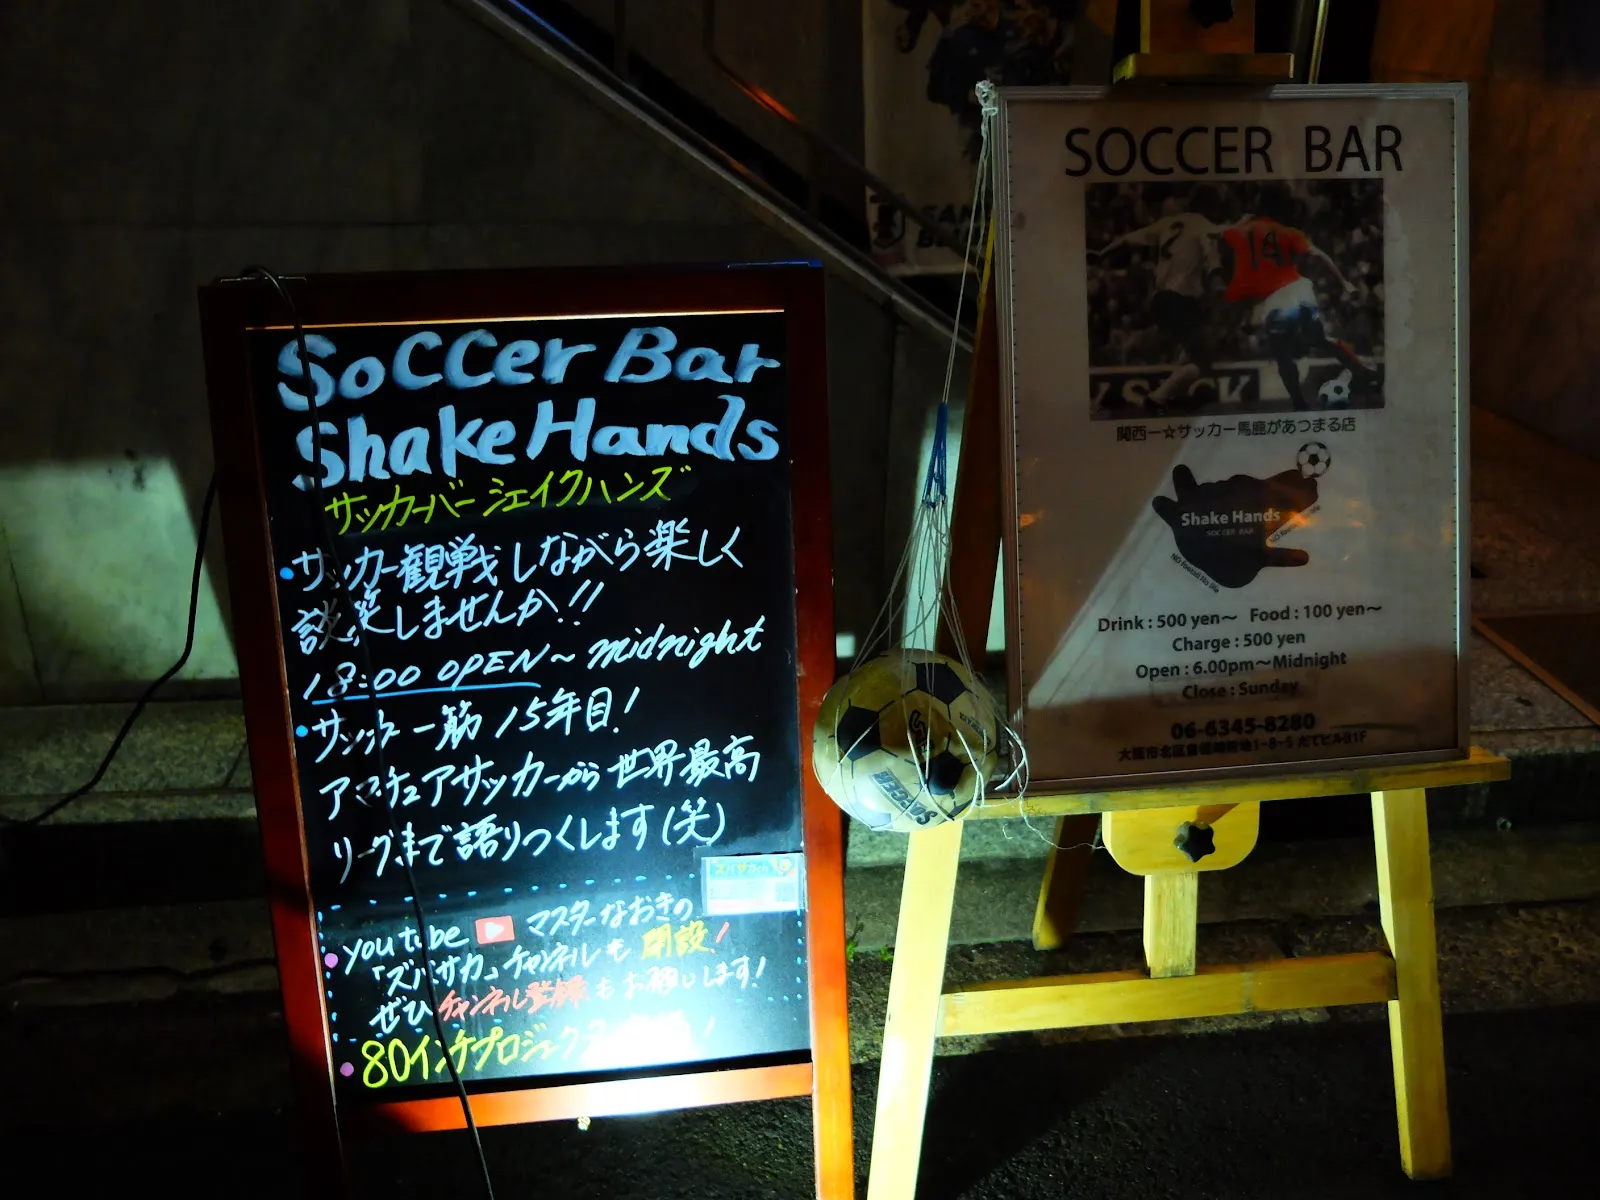 SoCCer Bar
Shake Hands
サッカーバー シェイクハンズ
・サッカー観戦しながら楽しく
談笑しませんか!!
18:00 OPEN~midnight
・サッカー一筋15年目!
アマチュアサッカーから世界最高
リーグまで語りつくします(笑)
・youtube マスターなおきの
「ズバサカ」チャンネルも開設!
ぜひチャンネル登録もお願いします!
・80インチプロジェクター
SOCCER BAR
2
14
関西一☆サッカー馬鹿があつまる店
Shake Hands
SOCCER BAR
NO football No life
Drink : 500 yen～ Food : 100 yen～
Charge : 500 yen
Open : 6.00pm～Midnight
Close : Sunday
06-6345-8280
大阪市北区曽根崎新地1-8-5 だてビルB1F
SOCCER